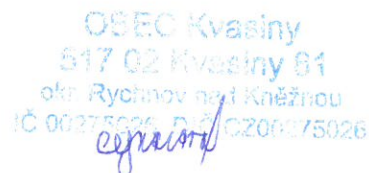 OBEC Kvasiny
517 02 Kvasiny 81
okr. Rychnov nad Kněžnou
IČ 00275026, DIČ CZ00275026